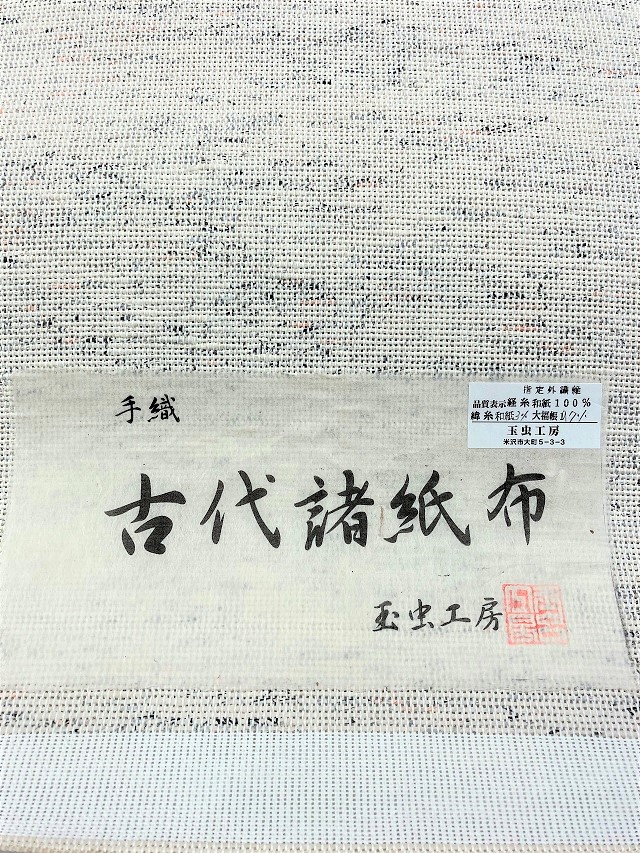 手織
指定外繊維
品質表示 経糸 和紙100%
緯糸 和紙3% 大福帳97%
玉虫工房
米沢市大町5-3-3
古代諸紙布
玉虫工房